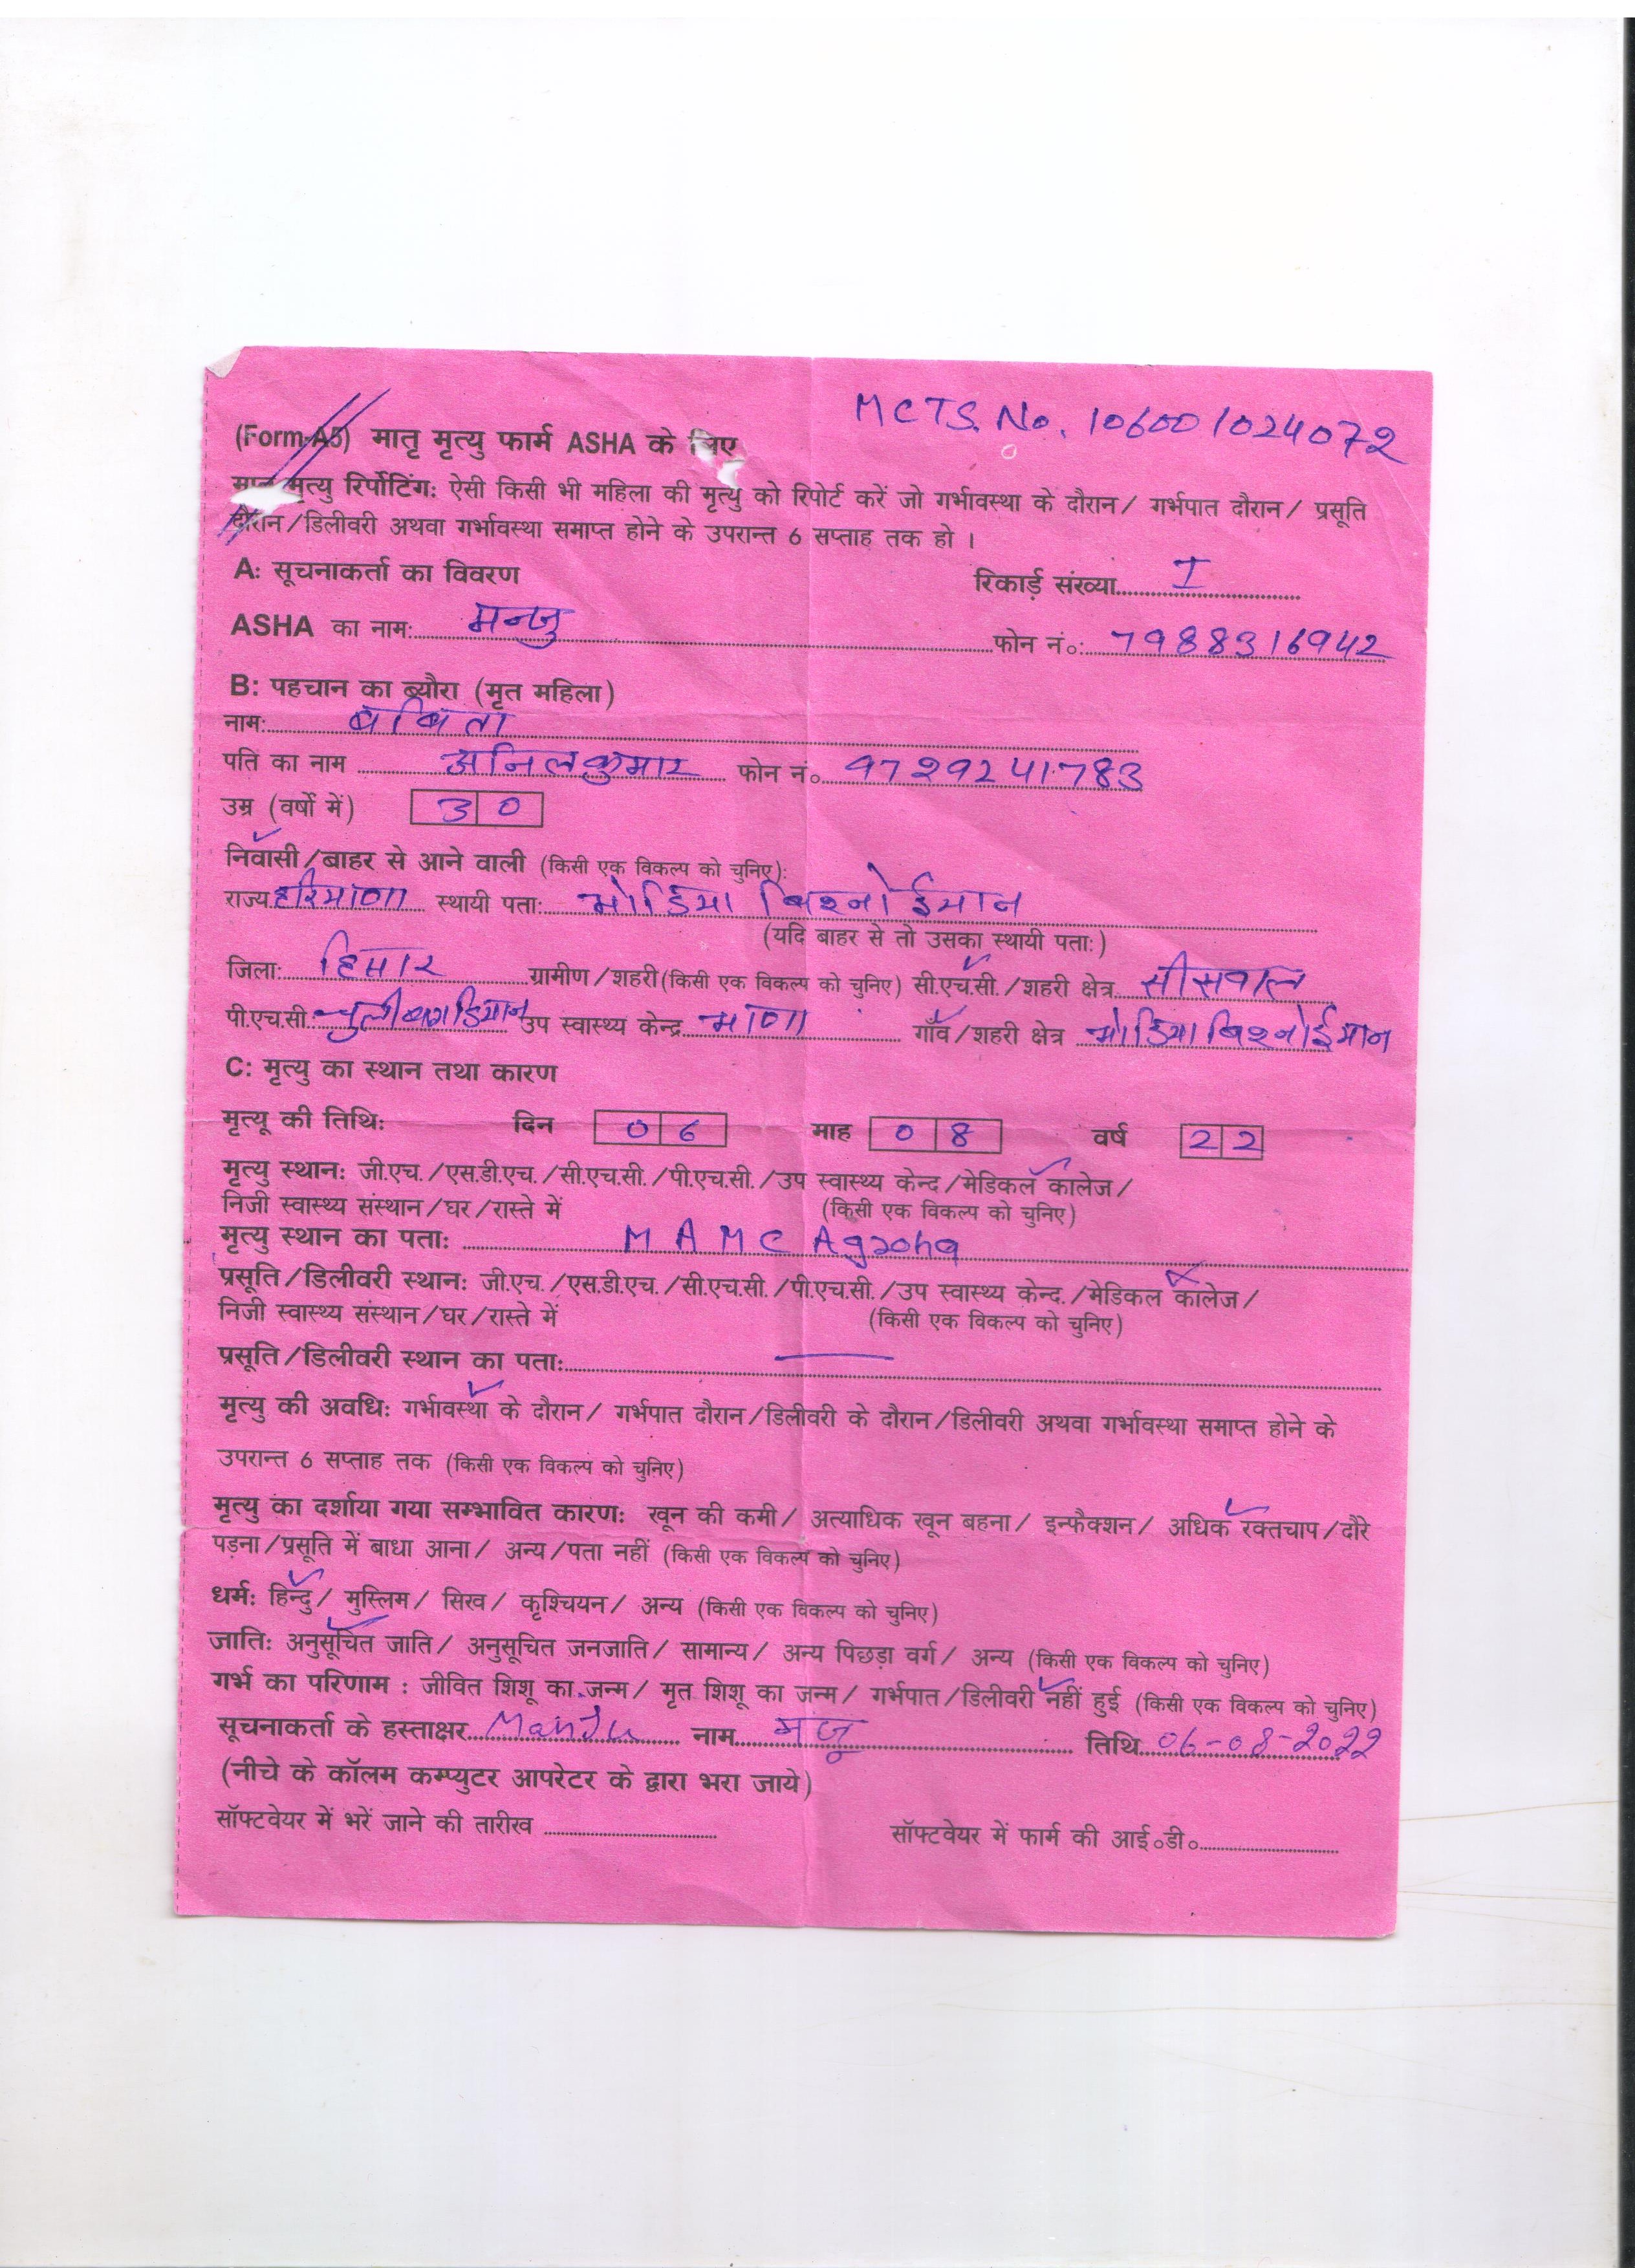 MCTS. No. 106001024072
(Form-A5) मातृ मृत्यु फार्म ASHA के लिए
मातृ मृत्यु रिर्पोटिंग: ऐसी किसी भी महिला की मृत्यु को रिपोर्ट करें जो गर्भावस्था के दौरान/ गर्भपात दौरान/ प्रसूति
दौरान/डिलीवरी अथवा गर्भावस्था समाप्त होने के उपरान्त 6 सप्ताह तक हो ।
A: सूचनाकर्ता का विवरण रिकार्ड़ संख्या I
ASHA का नाम: मन्जु फोन नं०: 7988316942
B: पहचान का ब्यौरा (मृत महिला)
नाम: बबिता
पति का नाम अनिल कुमार फोन नं० 9729241783
उम्र (वर्षों में) 30
निवासी/बाहर से आने वाली (किसी एक विकल्प को चुनिए):
राज्य हरियाणा स्थायी पता: मोडिया बिश्नोईयान
(यदि बाहर से तो उसका स्थायी पता:)
जिला: हिसार ग्रामीण/शहरी(किसी एक विकल्प को चुनिए) सी.एच.सी./शहरी क्षेत्र सीसवाल
पी.एच.सी. चुली बागडियान उप स्वास्थ्य केन्द्र गाँव/शहरी क्षेत्र मोडिया बिश्नोईयान
C: मृत्यु का स्थान तथा कारण
मृत्यू की तिथि: दिन 06 माह 08 वर्ष 22
मृत्यु स्थान: जी.एच./एस.डी.एच./सी.एच.सी./पी.एच.सी./उप स्वास्थ्य केन्द/मेडिकल कालेज/
निजी स्वास्थ्य संस्थान/घर/रास्ते में (किसी एक विकल्प को चुनिए)
मृत्यु स्थान का पता: MAMC Agroha
प्रसूति/डिलीवरी स्थान: जी.एच./एस.डी.एच./सी.एच.सी./पी.एच.सी./उप स्वास्थ्य केन्द./मेडिकल कालेज/
निजी स्वास्थ्य संस्थान/घर/रास्ते में (किसी एक विकल्प को चुनिए)
प्रसूति/डिलीवरी स्थान का पता:
मृत्यु की अवधि: गर्भावस्था के दौरान/ गर्भपात दौरान/डिलीवरी के दौरान/डिलीवरी अथवा गर्भावस्था समाप्त होने के
उपरान्त 6 सप्ताह तक (किसी एक विकल्प को चुनिए)
मृत्यु का दर्शाया गया सम्भावित कारण: खून की कमी/ अत्याधिक खून बहना/ इन्फैक्शन/ अधिक रक्तचाप/दौरे
पड़ना/प्रसूति में बाधा आना/ अन्य/पता नहीं (किसी एक विकल्प को चुनिए)
धर्म: हिन्दु/ मुस्लिम/ सिख/ कृश्चियन/ अन्य (किसी एक विकल्प को चुनिए)
जाति: अनुसूचित जाति/ अनुसूचित जनजाति/ सामान्य/ अन्य पिछड़ा वर्ग/ अन्य (किसी एक विकल्प को चुनिए)
गर्भ का परिणाम : जीवित शिशू का जन्म/ मृत शिशू का जन्म/ गर्भपात/डिलीवरी नहीं हुई (किसी एक विकल्प को चुनिए)
सूचनाकर्ता के हस्ताक्षर Manju नाम मजू तिथि 06-08-2022
(नीचे के कॉलम कम्प्युटर आपरेटर के द्वारा भरा जाये)
सॉफ्टवेयर में भरें जाने की तारीख सॉफ्टवेयर में फार्म की आई०डी०